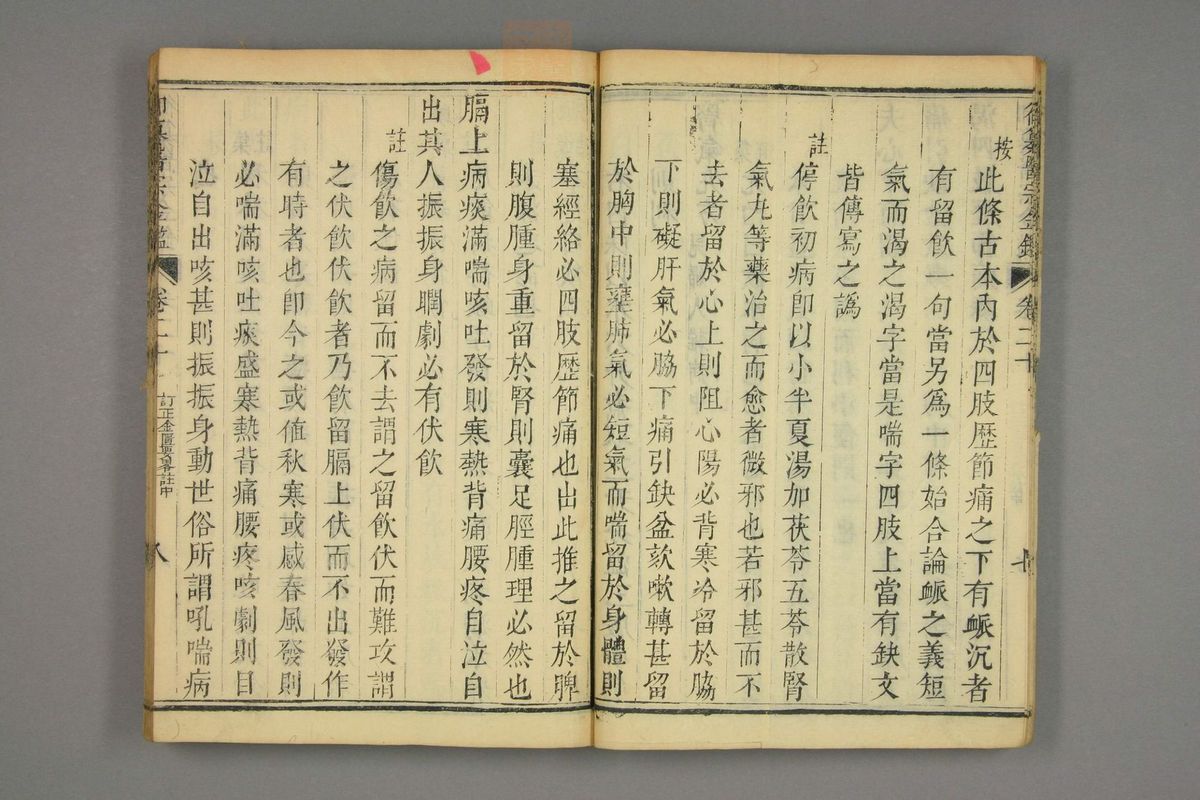 按
此條古本內於四肢歷節痛之下有衇沉者
有留飲一句當另爲一條始合論衇之義短
氣而渴之渴字當是喘字四肢上當有缺文
皆傳寫之譌
註
停飲初病卽以小半夏湯加茯苓五苓散腎
氣丸等藥治之而愈者微邪也若邪甚而不
去者留於心上則阻心陽必背寒冷留於脇
下則礙肝氣必脇下痛引缺盆欬嗽轉甚留
於胸中則壅肺氣必短氣而喘留於身體則
塞經絡必四肢歷節痛也出此推之留於脾
則腹腫身重留於腎則囊足脛腫理必然也
膈上病痰滿喘咳吐發則寒熱背痛腰疼目泣自
出其人振振身瞤劇必有伏飲
註
傷飲之病留而不去謂之留飲伏而難攻謂
之伏飲伏飲者乃飲留膈上伏而不出發作
有時者也卽今之或值秋寒或感春風發則
必喘滿咳吐痰盛寒熱背痛腰疼咳劇則目
泣自出咳甚則振振身動世俗所謂吼喘病
卷二十
訂正金匱要畧註中
八